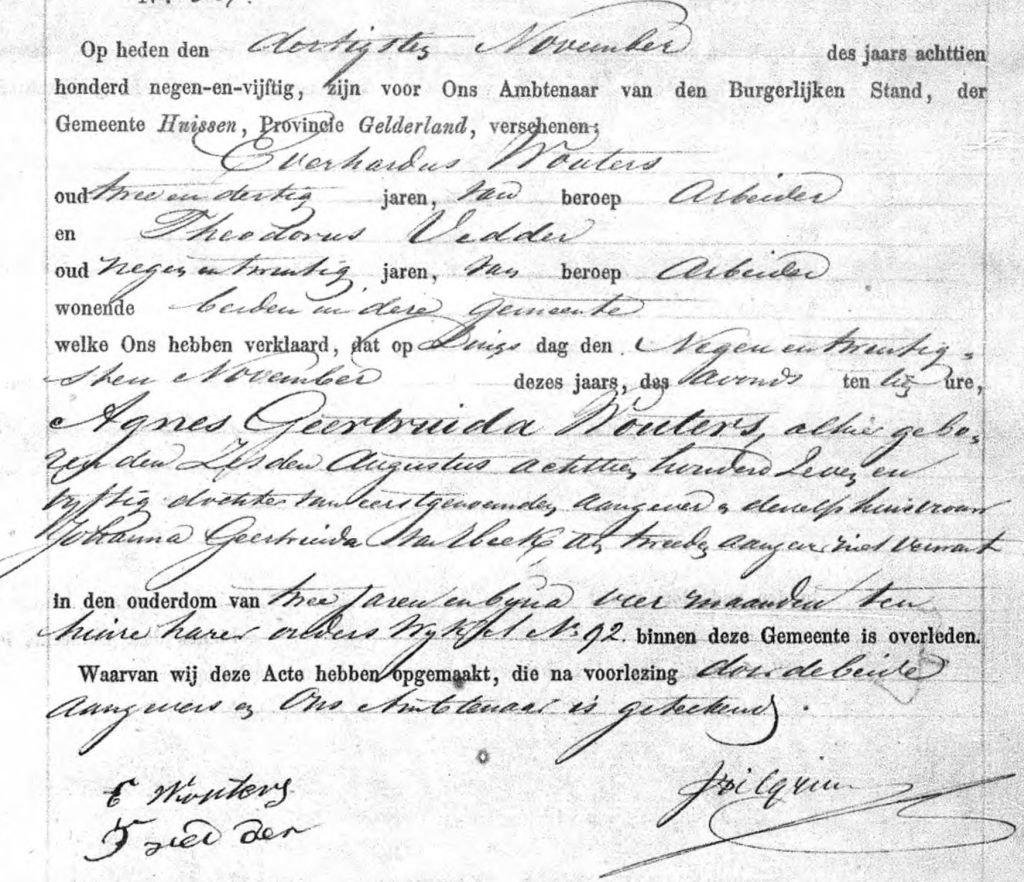 Op heden den dertigsten November des jaars achttien
honderd negen-en-vijftig, zijn voor Ons Ambtenaar van den Burgerlijken Stand, der
Gemeente Huissen, Provincie Gelderland, verschenen:
Everhardus Wouters
oud twee en dertig jaren, van beroep Arbeider
en Theodorus Vedder
oud negen en twintig jaren, van beroep Arbeider
wonende beiden in deze gemeente
welke Ons hebben verklaard, dat op Dings dag den Negen en twintig-
sten November dezes jaars, des avonds ten ure,
Agnes Geertruida Wouters, alhier gebo-
ren den Zesden Augustus achttien honderd zeven en
vyftig dochter van eerstgenoemden aangever en deszelfs huisvrouw
Johanna Geertruida van Beek en tweeden aangever niet verwant
in den ouderdom van twee jaren en byna vier maanden ten
huize harer ouders Wyk No. 92. binnen deze Gemeente is overleden.
Waarvan wij deze Acte hebben opgemaakt, die na voorlezing door de beide
aangevers en Ons Ambtenaar is geteekend.
E Wouters
T ved der